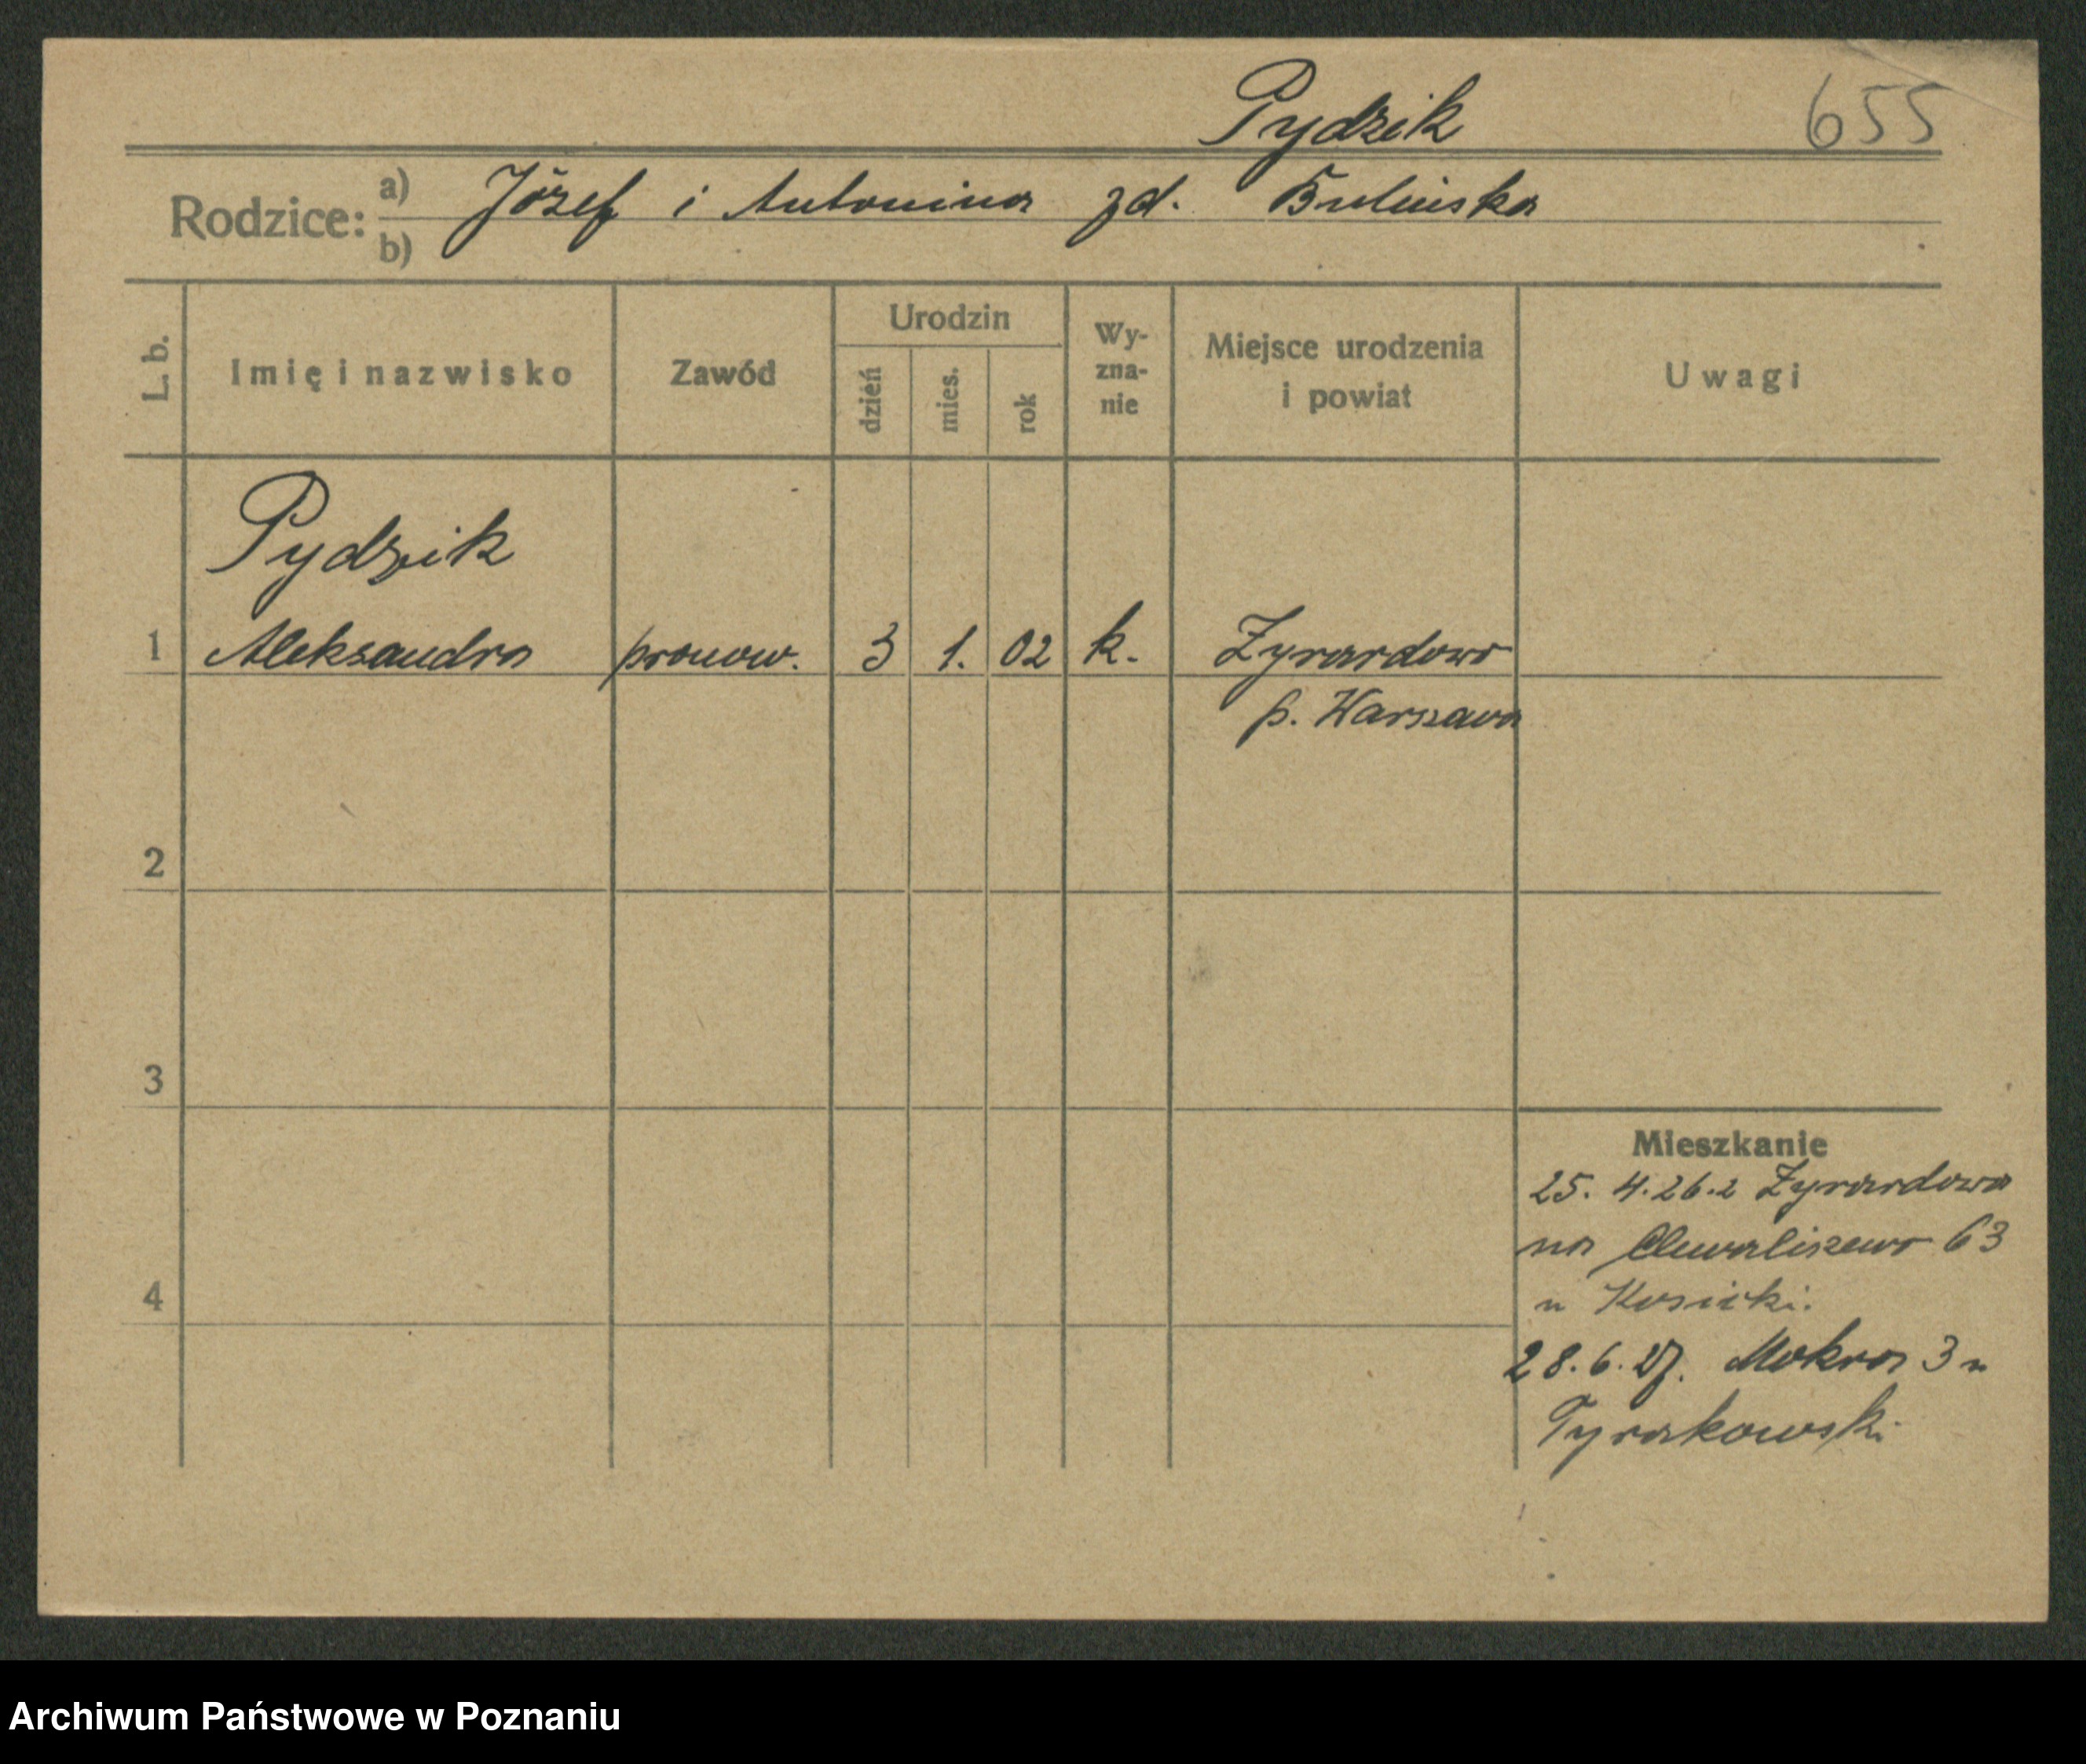 Pydzik 655
Rodzice: a) Józef i Antonina zd. Bulińska
b)
L. b. Imię i nazwisko Zawód Urodzin dzień mies. rok Wy-zna-nie Miejsce urodzenia i powiat Uwagi
Pydzik
1 Aleksandra pracow. 3 1. 02 k. Zyrardowo
p. Warszawa
2
3
Mieszkanie
25. 4. 26. z Zyrardowa
na Chwaliszewo 63
4 u Kosicki.
28. 6. 27. Mokra 3 u
Tyrakowski
Archiwum Państwowe w Poznaniu